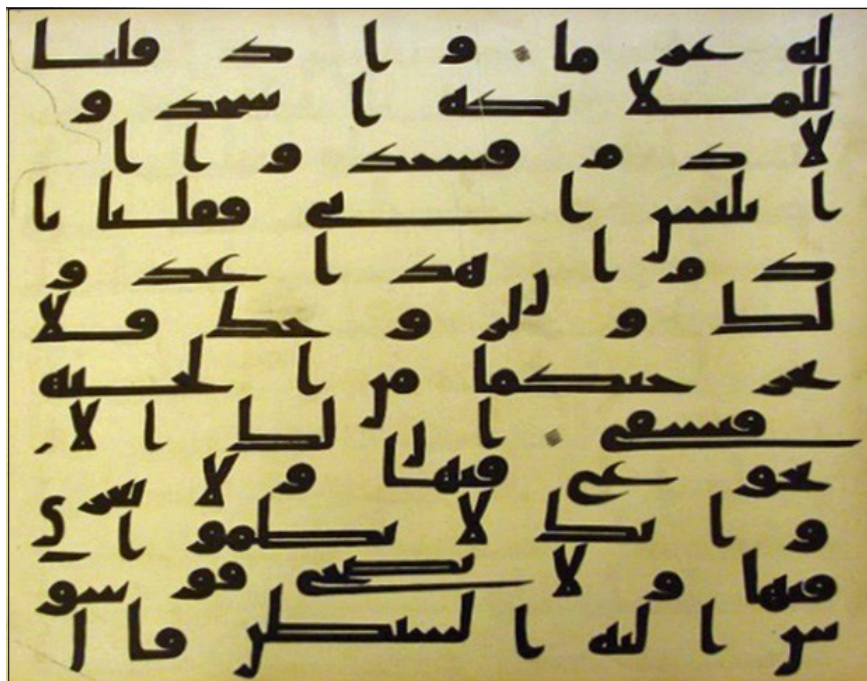 له عزما وإذ قلنا
للملائكة اسجدو
لادم فسجدوا ا
ا بليس ابى فقلنا يا
دم ان هذا عدو
لك ولزوجك فلا
يخرجنكما من الجنة
فتشقى ان لك الا
تجوع فيها ولا تعرى
وانك لا تظموا
فيها ولا تضحى فوسو
س اليه الشيطن قال